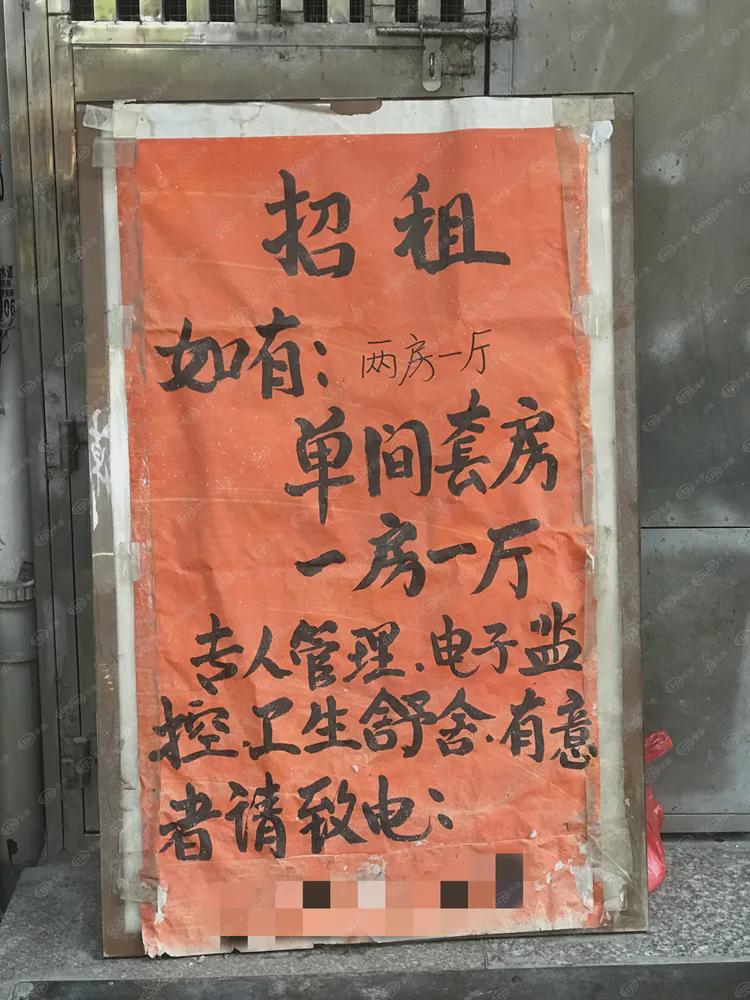 招租
如有：两房一厅
单间套房
一房一厅
专人管理.电子监
控.卫生舒舍.有意
者请致电：